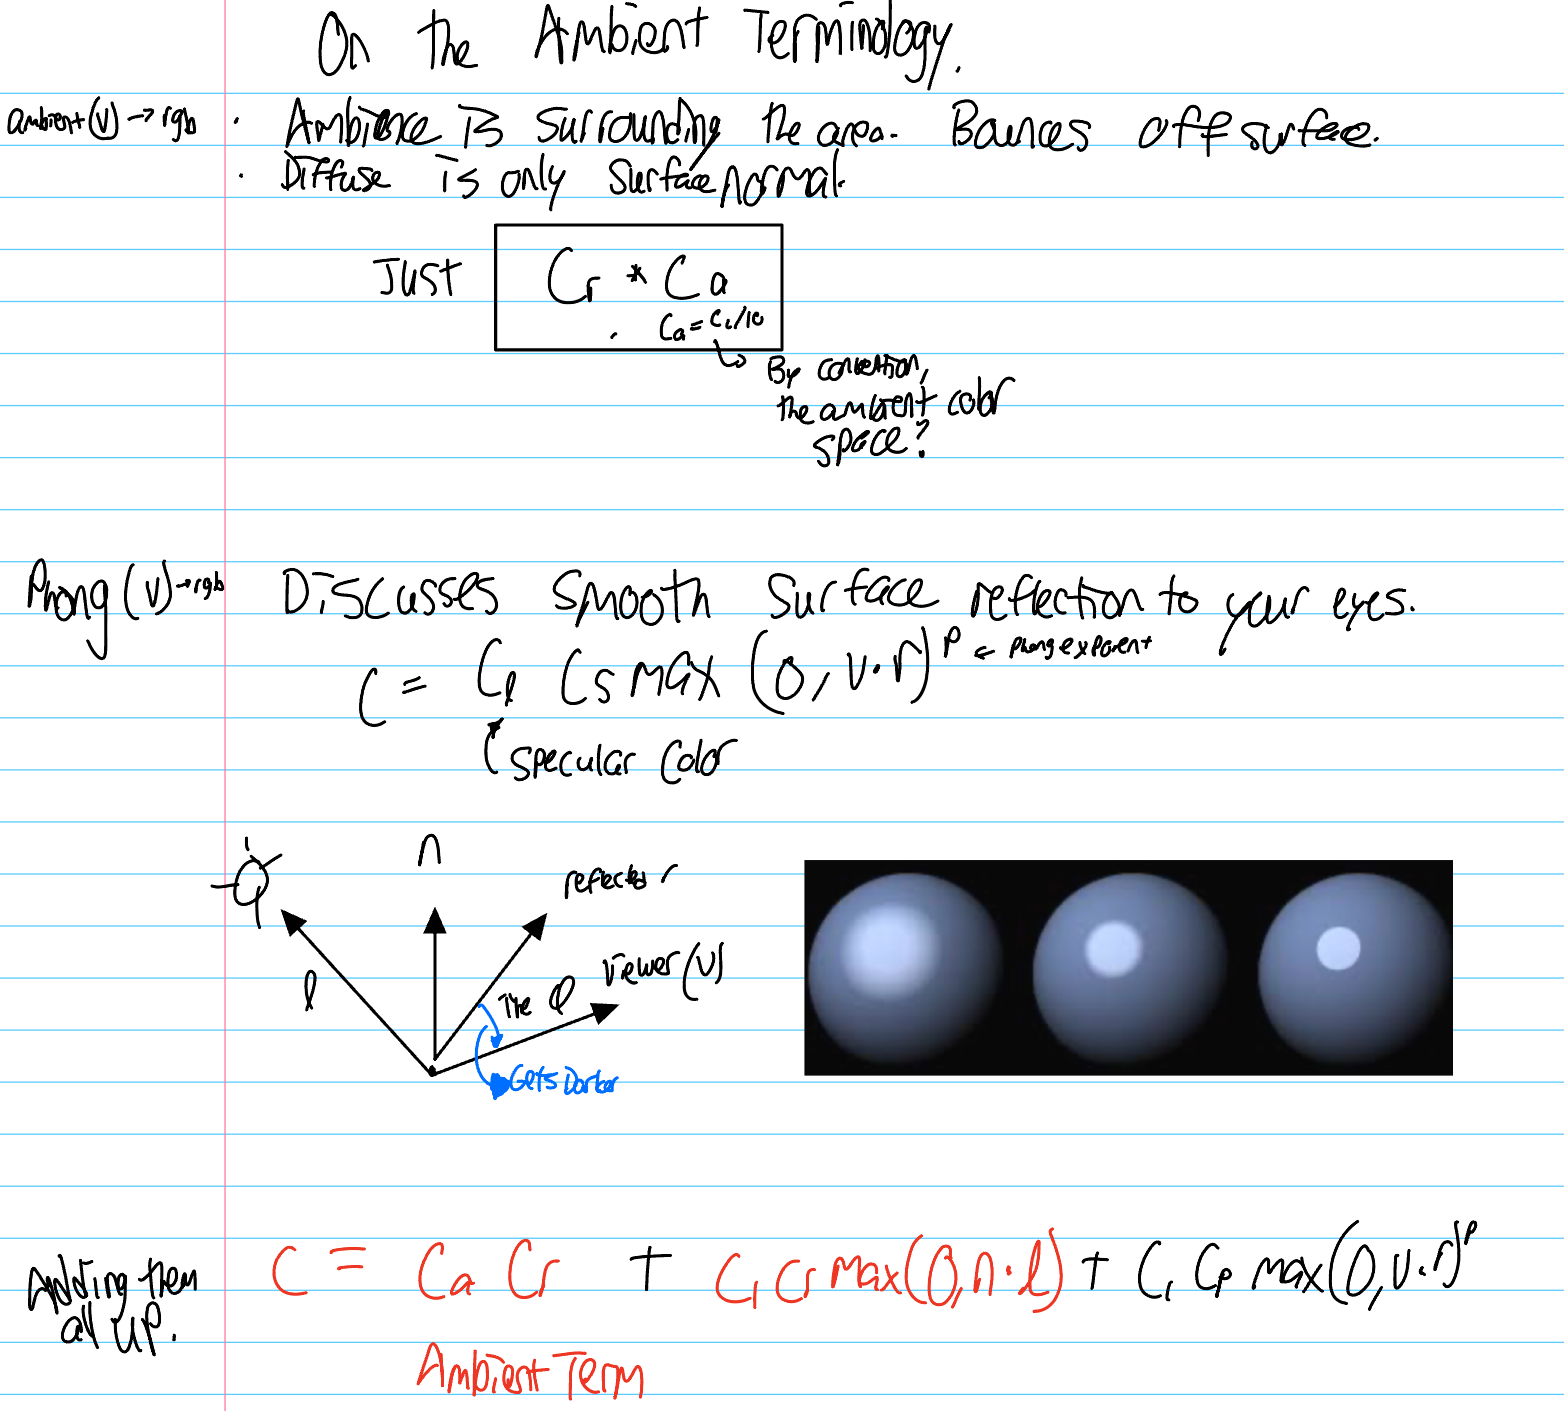 On the Ambient Terminology.
ambient(v) → rgb
· Ambience is surrounding the area. Bounces off surface.
· Diffuse is only surface normal.
Just Cr * Ca
Ca = CL/10
By convention,
the ambient color
space?
Phong (v) → rgb
Discusses smooth surface reflection to your eyes.
C = Cl Cs max (0, v·r)^P ← phong exponent
specular color
n
reflected r
l
The φ
Viewer (v)
Gets Darker
Adding them
all up.
C = Ca Cr + CL Cr max(0, n·l) + CL Cp max(0, v·r)^P
Ambient Term